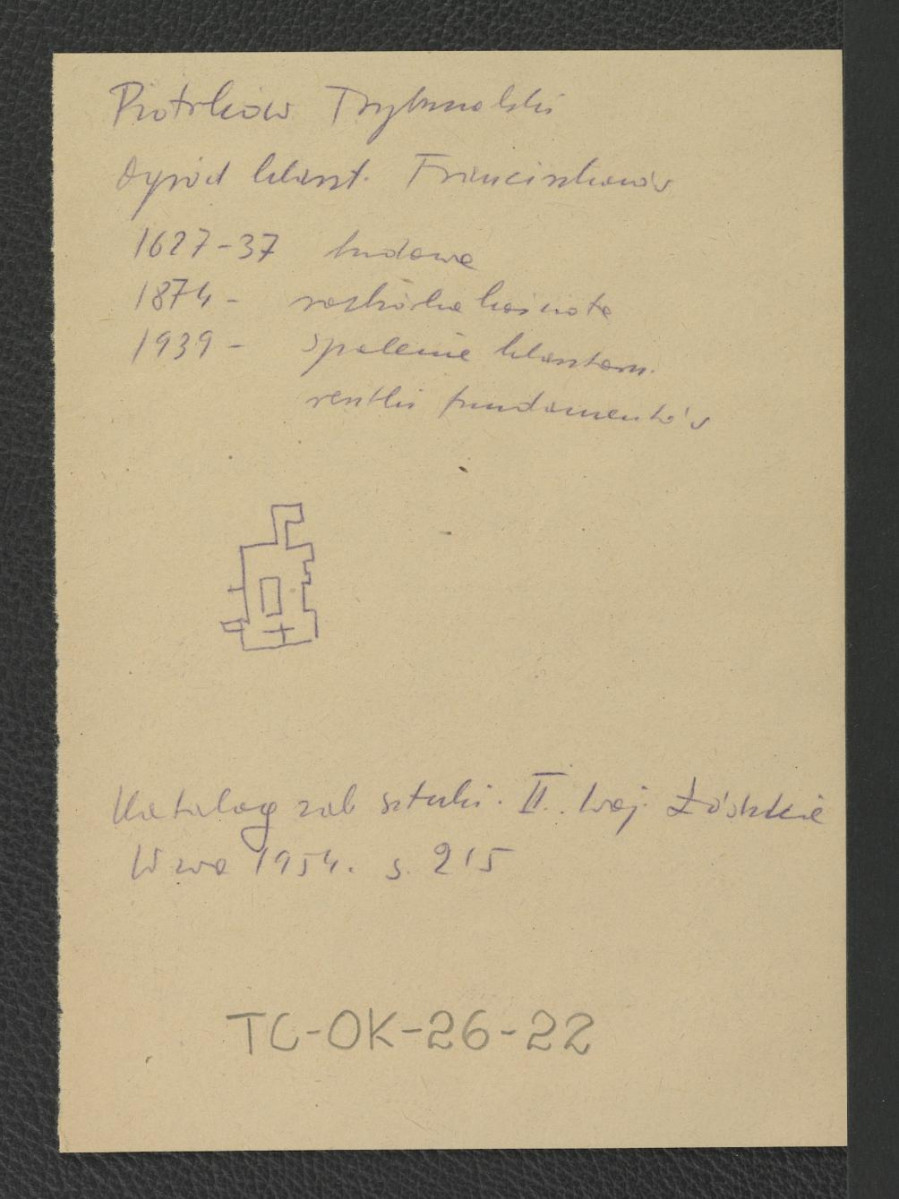 Piotrków Trybunalski
Ogród klaszt. Franciszkanów
1627-37 budowa
1874 - rozbiórka kościoła
1939 - spalenie klasztoru.
resztki fundamentów
Katalog zab sztuki. II. woj. Łódzkie
W-wa 1954. s. 215
TC-OK-26-22